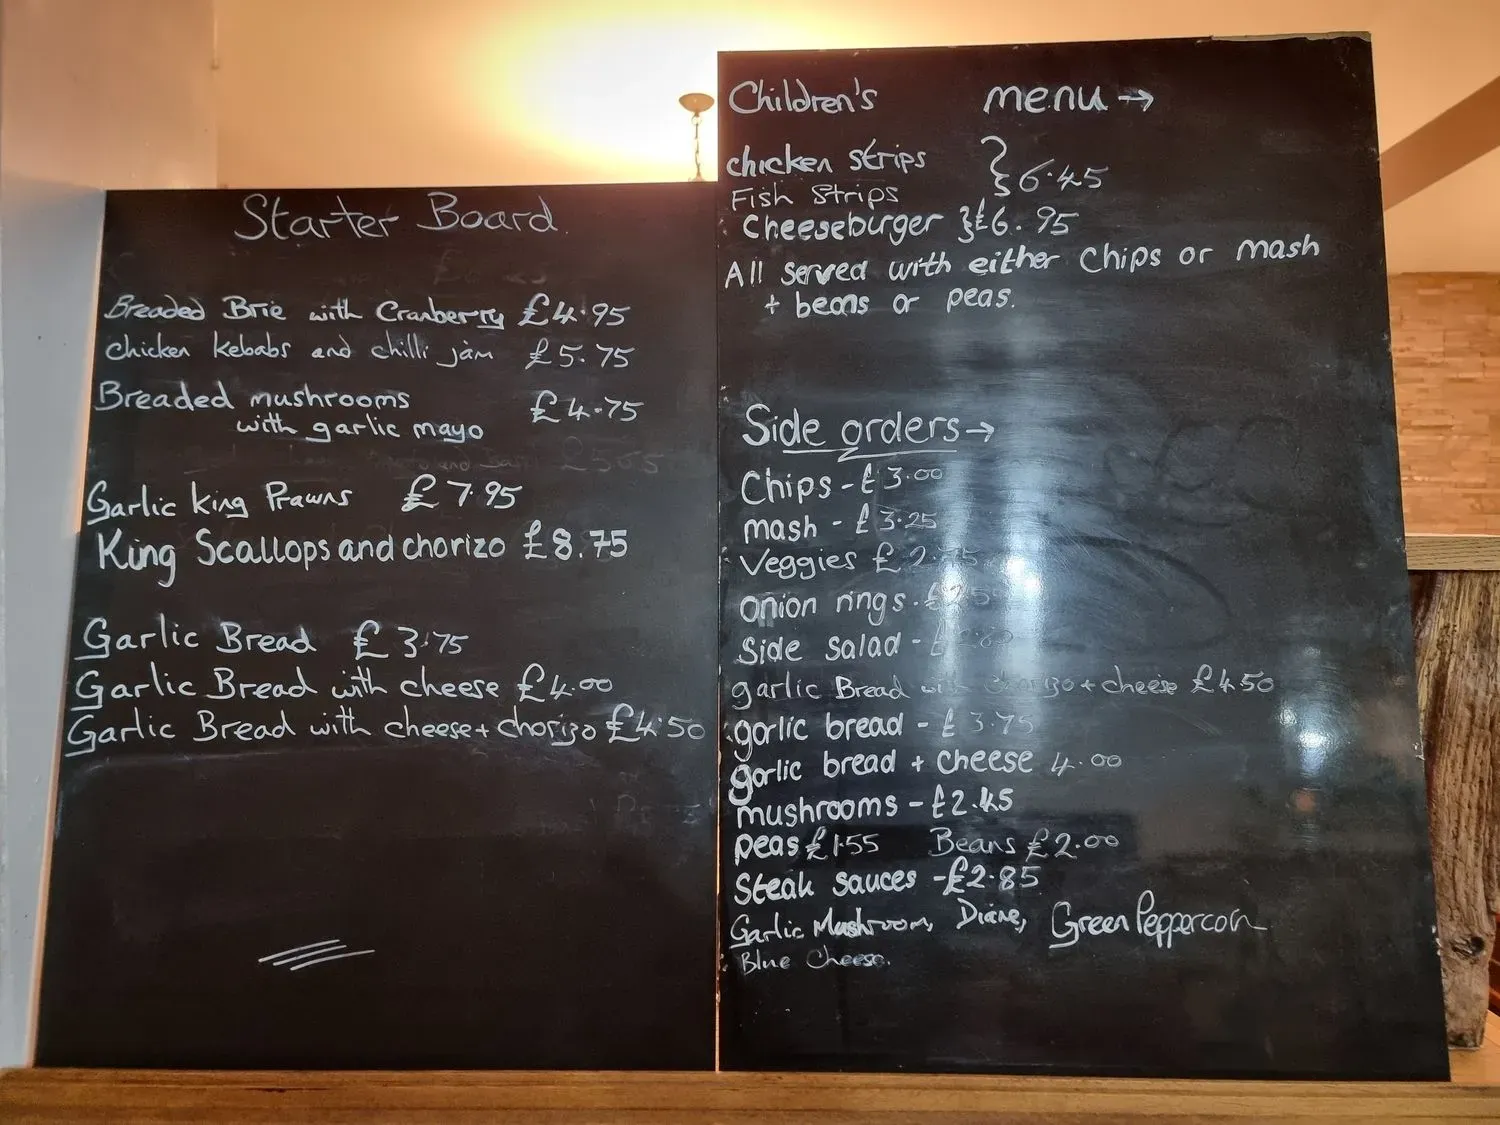 Starter Board
Breaded Brie with Cranberry £4.95
Chicken Kebabs and chilli jam £5.75
Breaded mushrooms £4.75
with garlic mayo
Garlic King Prawns £7.95
King Scallops and chorizo £8.75
Garlic Bread £3.75
Garlic Bread with cheese £4.00
Garlic Bread with cheese + chorizo £4.50
Children's menu →
chicken strips } 6.45
Fish Strips
Cheeseburger } £6.95
All served with either Chips or mash
+ beans or peas.
Side orders →
Chips - £3.00
mash - £3.25
Veggies £2.75
onion rings -
Side salad -
garlic Bread with chorizo + cheese £4.50
garlic bread - £3.75
garlic bread + cheese 4.00
mushrooms - £2.45
peas £1.55 Beans £2.00
Steak sauces - £2.85
Garlic Mushroom, Diane, Green Peppercorn
Blue Cheese.